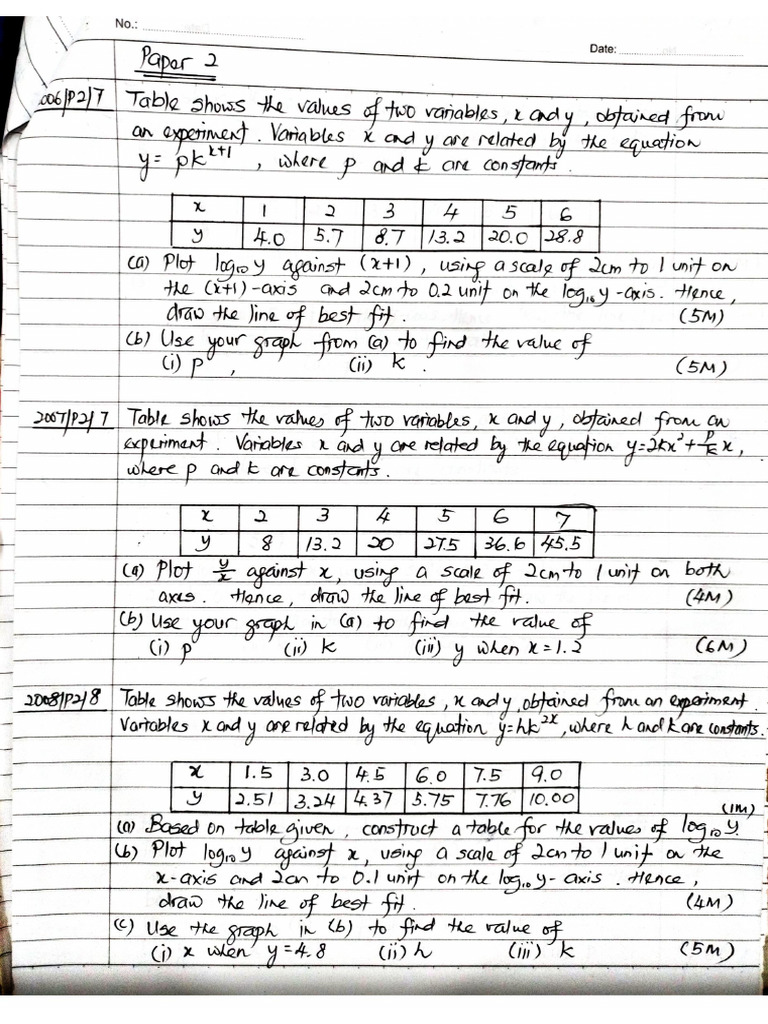 No.:
Date:
Paper 2
006/P2/7 Table shows the values of two variables, x and y, obtained from
an experiment. Variables x and y are related by the equation
y = pk^(x+1), where p and k are constants.
x 1 2 3 4 5 6
y 4.0 5.7 8.7 13.2 20.0 28.8
(a) Plot log₁₀ y against (x+1), using a scale of 2cm to 1 unit on
the (x+1)-axis and 2cm to 0.2 unit on the log₁₀ y-axis. Hence,
draw the line of best fit. (5M)
(b) Use your graph from (a) to find the value of
(i) p, (ii) k. (5M)
2007/P2/7 Table shows the values of two variables, x and y, obtained from an
experiment. Variables x and y are related by the equation y=2kx²+p/k x,
where p and k are constants.
x 2 3 4 5 6 7
y 8 13.2 20 27.5 36.6 45.5
(a) Plot y/x against x, using a scale of 2cm to 1 unit on both
axes. Hence, draw the line of best fit. (4M)
(b) Use your graph in (a) to find the value of
(i) p (ii) k (iii) y when x=1.2 (6M)
2008/P2/8 Table shows the values of two variables, x and y, obtained from an experiment.
Variables x and y are related by the equation y=hk^(2x), where h and k are constants.
x 1.5 3.0 4.5 6.0 7.5 9.0
y 2.51 3.24 4.37 5.75 7.76 10.00
(1M)
(a) Based on table given, construct a table for the values of log₁₀ y.
(b) Plot log₁₀ y against x, using a scale of 2cm to 1 unit on the
x-axis and 2cm to 0.1 unit on the log₁₀ y-axis. Hence,
draw the line of best fit. (4M)
(c) Use the graph in (b) to find the value of
(i) x when y=4.8 (ii) h (iii) k (5M)